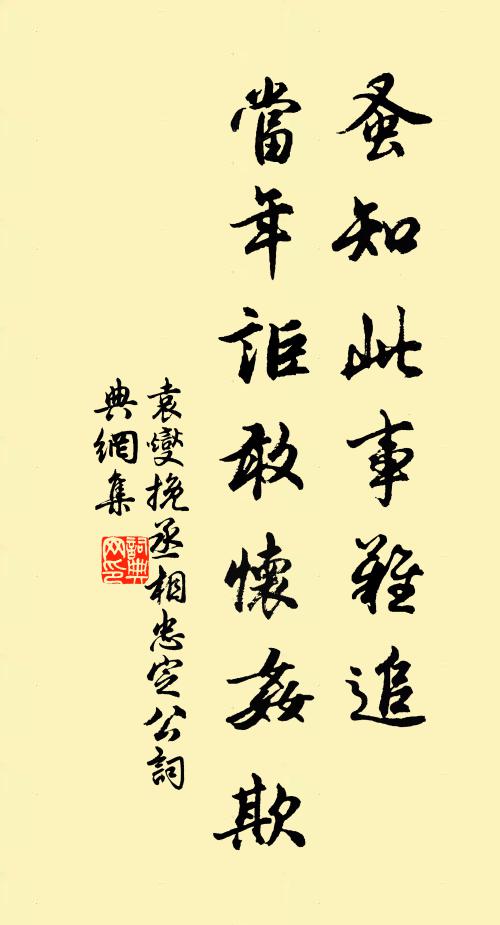 蚤知此事難追
當年詎敢懷姦欺
袁燮挽丞相忠定公詞
典網集
詞典網印